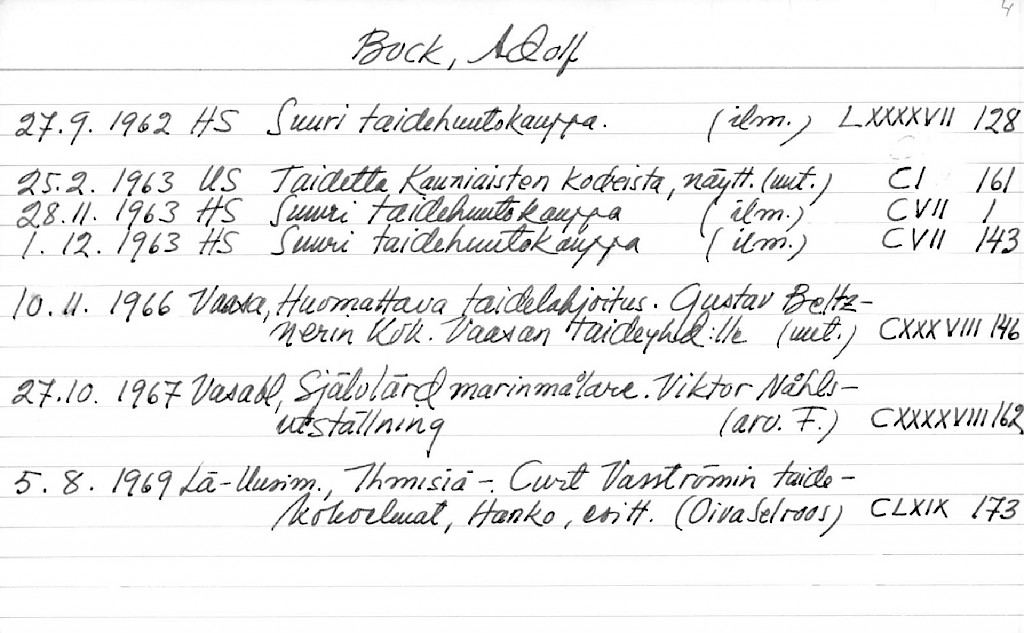 4
Bock, Adolf
27.9. 1962 HS Suuri taidehuutokauppa. (ilm.) LXXXXVII 128
25.2. 1963 US Taidetta Kauniaisten kodeista, näytt. (uut.) CI 161
28.11. 1963 HS Suuri taidehuutokauppa (ilm.) CVII 1
1. 12. 1963 HS Suuri taidehuutokauppa (ilm.) CVII 143
10.11. 1966 Vaasa, Huomattava taidelahjoitus. Gustav Beltz-
nerin kok. Vaasan taideyhd:lle (uut.) CXXXVIII 146
27.10. 1967 Vasabl, Självlärd marinmålare. Viktor Nåhls-
utställning (arv. F.) CXXXXVIII 162
5. 8. 1969 Lä-Uusim., Ihmisiä -. Curt Vasströmin taide-
kokoelmat, Hanko, esitt. (Oiva Selroos) CLXIX 173